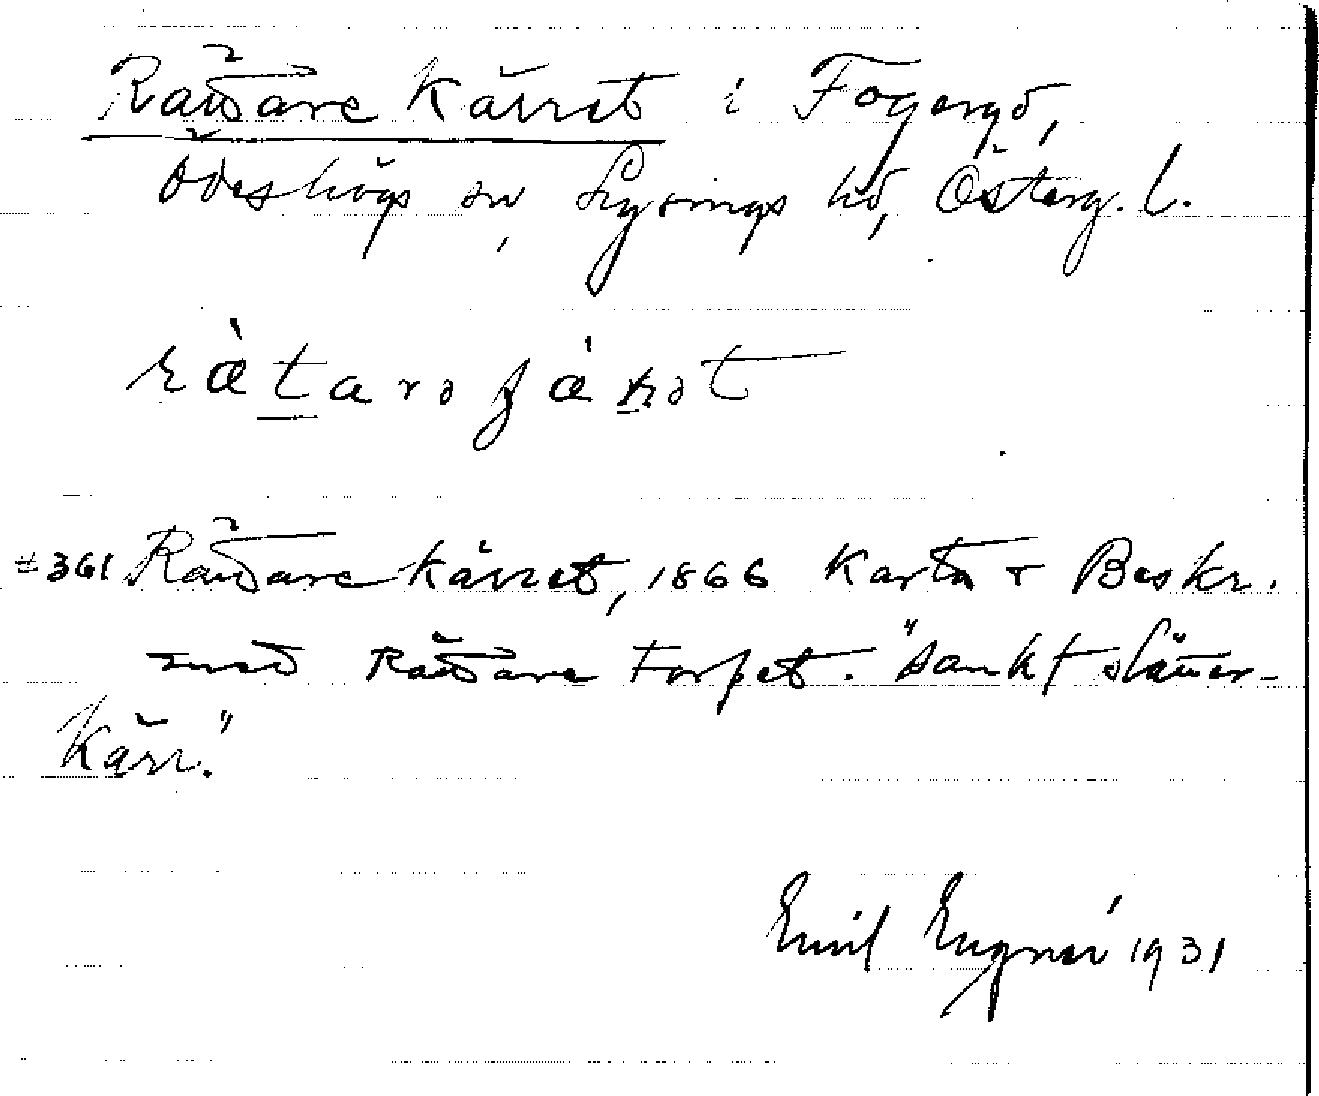 Rättare Kärret i Fogeryd,
Ödeshögs sn, Lysings hd, Österg. l.
ràtarə járət
#361 Rättare kärret, 1866 Karta & Beskr.
med Rättare Torpet. "Sankt slåtter-
Kärr."
Emil Engnér 1931